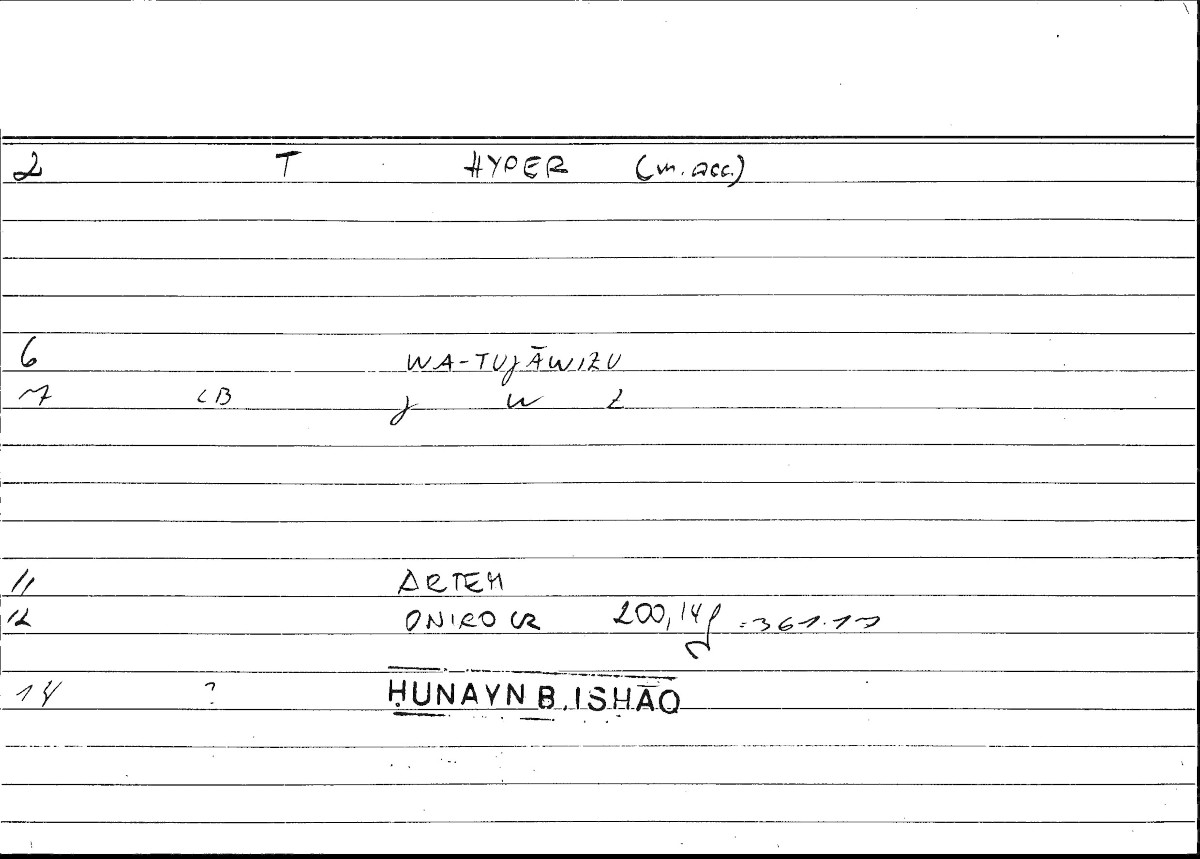 2 T HYPER (m. acc.)
6 WA-TUJĀWIZU
7 CB j w z
11 ARTEM
12 ONIROCR 200,14f = 361.17
14 ? ḤUNAYN B. ISḤĀQ